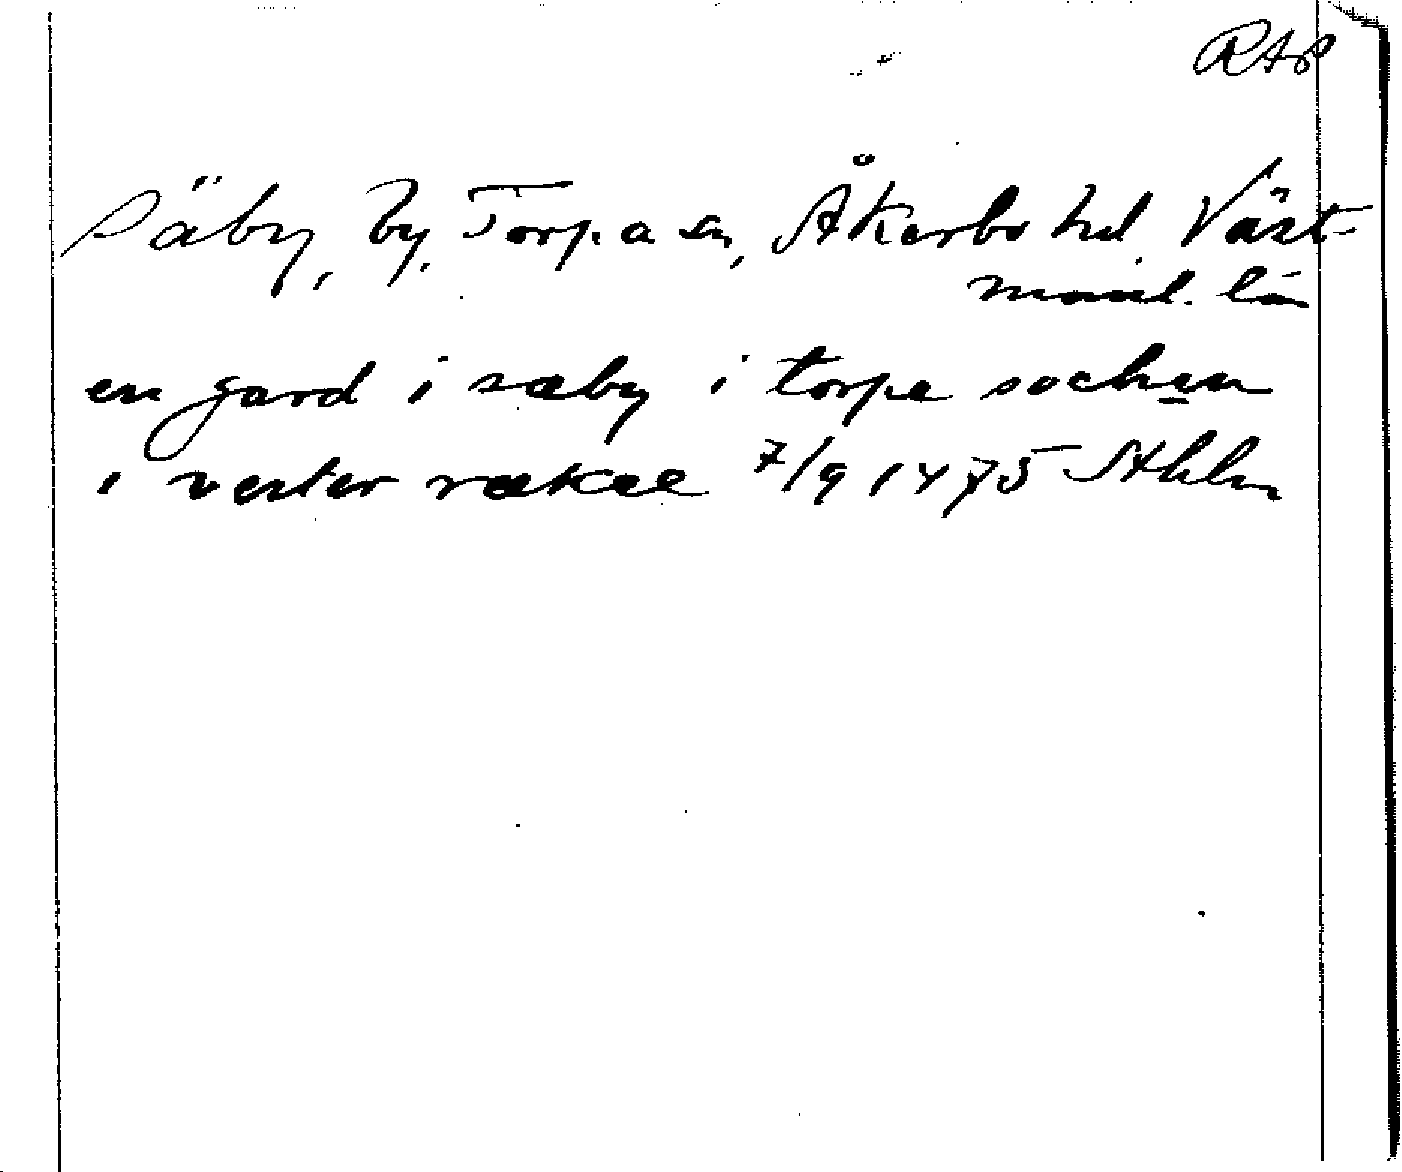 RAP
Säby, by, Torpa sn, Åkerbo hd, Väst-
manl. län
en gard i sæby i torpa sochen
i vester rækæ 7/9 1475 Sthlm